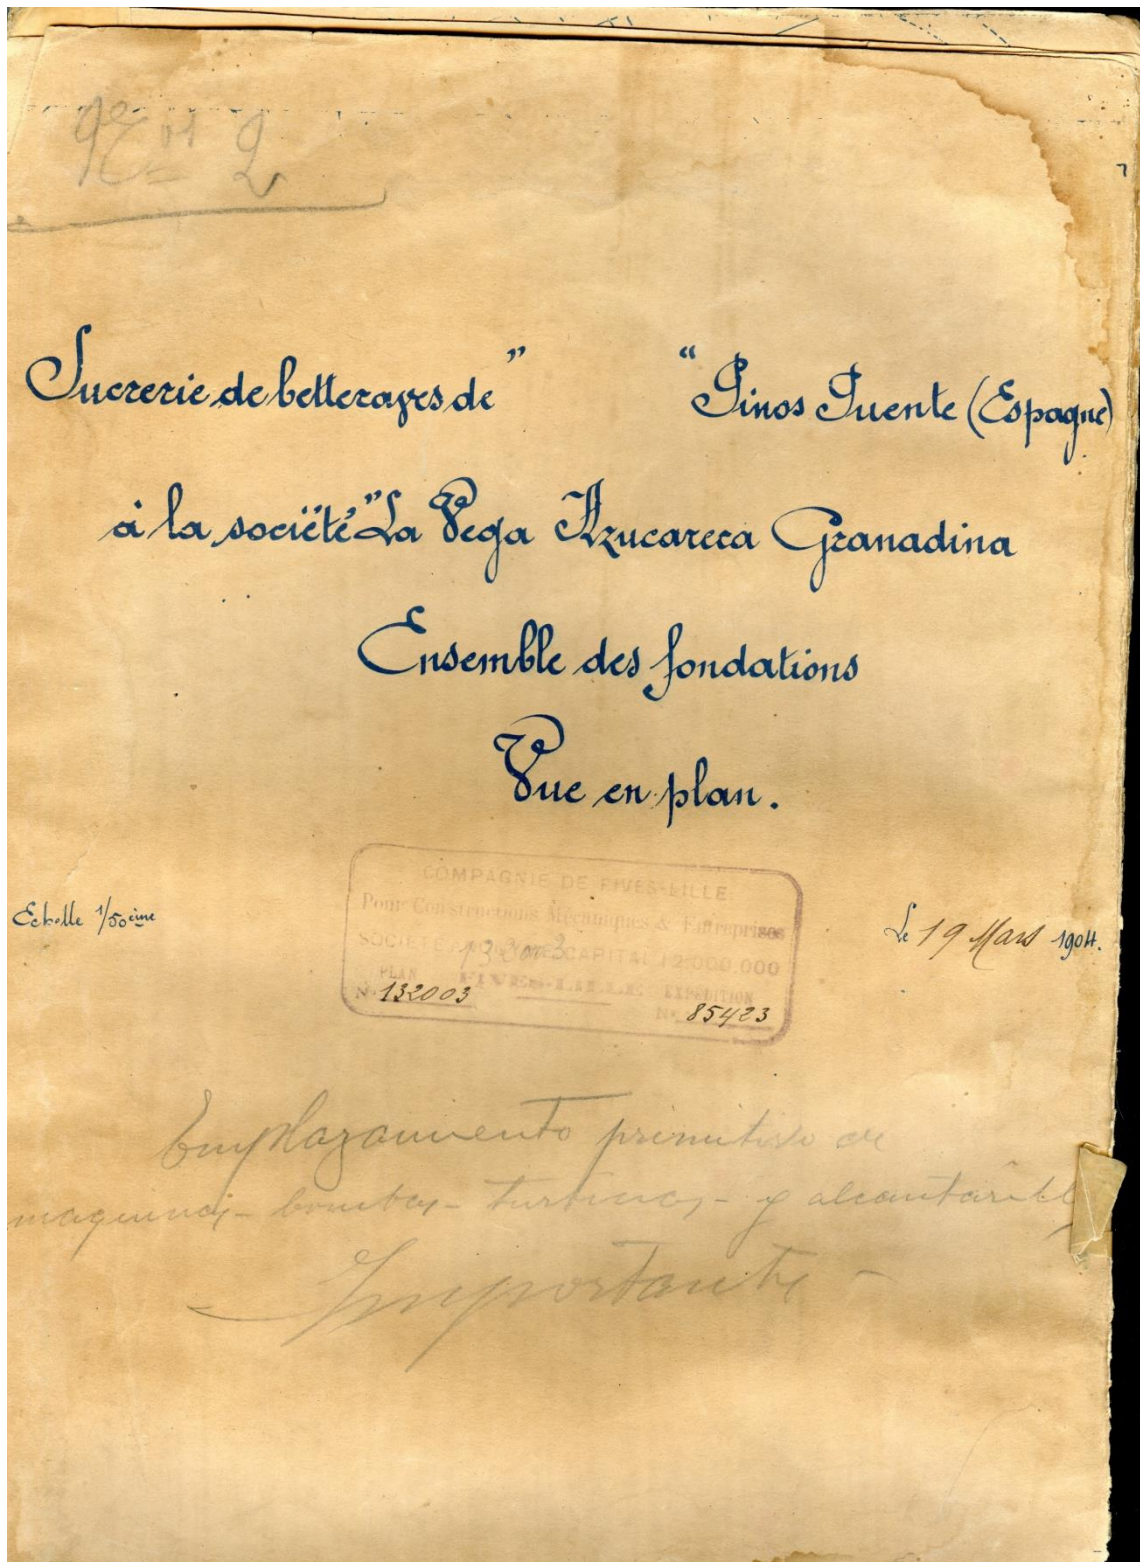 Nº 2
Sucrerie de betteraves de " " Pinos Puente (Espagne)
à la sociëté "La Vega Azucarera Granadina
Ensemble des fondations
Vue en plan.
COMPAGNIE DE FIVES-LILLE
Pour Constructions Mécaniques & Entreprises
SOCIÉTÉ ANONYME CAPITAL 12.000.000
FIVES-LILLE
PLAN EXPÉDITION
N. 132003 N. 85423
Echelle 1/50 ème
Le 19 Mars 1904.
Emplazamiento primitivo de
maquinas - bombas - turbinas - y alcantarilla
Importante -